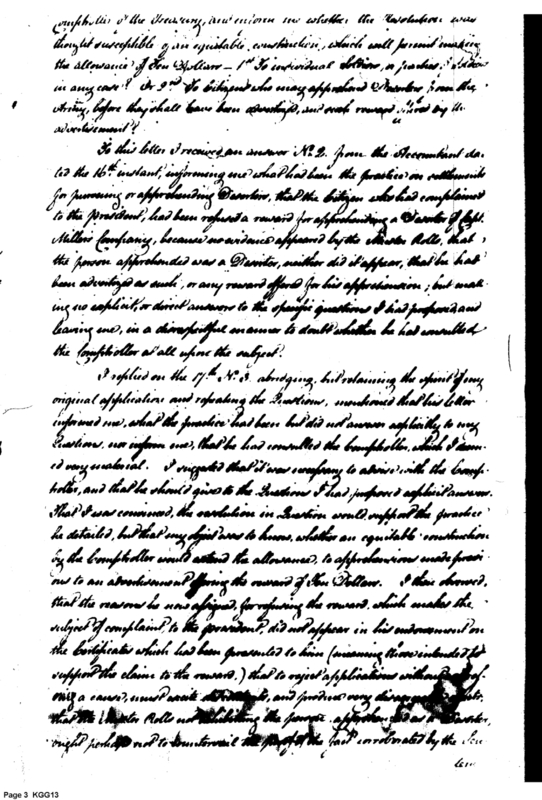 Comptroller of the Treasury, and inform me whether the Resolution was
thought susceptible of an equitable construction, which will permit making
the allowance of Ten Dollars – 1st To individual Soldiers, or parties of Soldiers
in any case? Or 2nd To Citizens who may apprehend Deserters from the
Army, before they shall have been advertised, and such reward offered by the
advertisement?
To this letter I received an answer No. 2. from the Accountant da-
ted the 16th instant, informing me what had been the practice on settlements
for pursuing or apprehending Deserters, that the Citizen who had complained
to the President, had been refused a reward for apprehending a Deserter of Capt.
Millers Company, because no evidence appeared by the Muster Rolls, that
the person apprehended was a Deserter, neither did it appear, that he had
been advertized as such, or any reward offered for his apprehension; but mak-
ing no explicit, or direct answers to the specific questions I had proposed and
leaving me, in a disrespectful manner to doubt whether he had consulted
the Comptroller at all upon the subject.
I replied on the 17th No. 3. abridging, but retaining the spirit of my
original application and repeating the Questions, mentioned that his letter
informed me, what the practice had been but did not answer explicitly to my
Questions, nor inform me, that he had consulted the Comptroller, which I deem-
ed very material. I suggested that it was necessary to advise with the Comp-
troller, and that he should give to the Questions I had proposed explicit answers.
That I was convinced, the resolution in Question would support the practice
he detailed, but that my object was to know, whether an equitable construction
by the Comptroller would extend the allowance, to apprehensions made previ-
ous to an advertisement offering the reward of Ten Dollars. I then observed,
that the reasons he now assigned, for refusing the reward, which makes the
subject of complaint, to the president, did not appear in his endorsement on
the Certificates which had been presented to him (meaning those intended to
support the claim to the reward.) that to reject applications without
a cause, must excite and produce very
that the Muster Roll not exhibiting the person apprehended as a Deserter,
ought perhaps not to countervail the proof of the fact corroborated by the
Page 3 KGG13